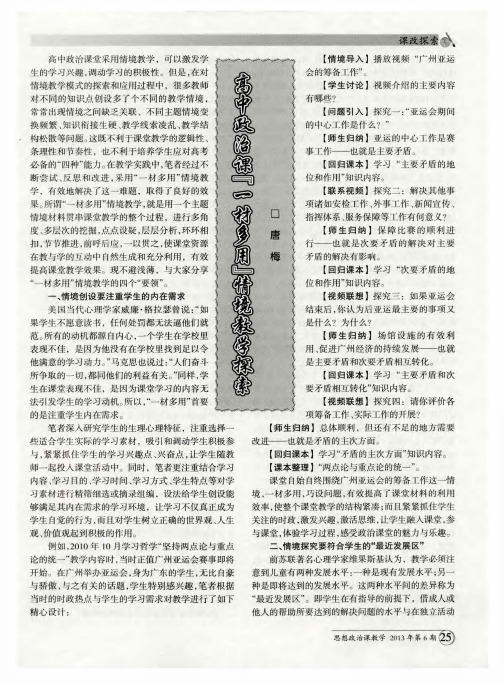 课改探索
高中政治课『一材多用』情境教学探索
□ 唐 梅
高中政治课堂采用情境教学，可以激发学
生的学习兴趣,调动学习的积极性。但是,在对
情境教学模式的探索和应用过程中，很多教师
对不同的知识点创设多了个不同的教学情境，
常常出现情境之间缺乏关联、不同主题情境变
换频繁、知识衔接生硬、教学线索凌乱、教学结
构松散等问题。这既不利于课堂教学的逻辑性、
条理性和节奏性，也不利于培养学生应对高考
必备的“四种”能力。在教学实践中,笔者经过不
断尝试、反思和改进,采用“一材多用”情境教
学，有效地解决了这一难题，取得了良好的效
果。所谓“一材多用”情境教学,就是用一个主题
情境材料贯串课堂教学的整个过程，进行多角
度、多层次的挖掘,点点设疑,层层分析,环环相
扣,节节推进,前呼后应,一以贯之,使课堂资源
在教与学的互动中自然生成和充分利用，有效
提高课堂教学效果。现不避浅薄，与大家分享
“一材多用”情境教学的四个“要领”。
一、情境创设要注重学生的内在需求
美国当代心理学家威廉·格拉瑟曾说：“如
果学生不愿意读书，任何处罚都无法逼他们就
范。所有的动机都源自内心,一个学生在学校里
表现不佳，是因为他没有在学校里找到足以令
他满意的学习动力。”马克思也说过：“人们奋斗
所争取的一切,都同他们的利益有关。”同样,学
生在课堂表现不佳，是因为课堂学习的内容无
法引发学生的学习动机。所以,“一材多用”首要
的是注重学生内在需求。
笔者深入研究学生的生理心理特征，注重选择一
些适合学生实际的学习素材，吸引和调动学生积极参
与,紧紧抓住学生的学习兴趣点、兴奋点,让学生随教
师一起投入课堂活动中。同时，笔者更注重结合学习
内容、学习目的、学习时间、学习方式、学生特点等对学
习素材进行精筛细选或摘录组编，设法给学生创设能
够满足其内在需求的学习环境，让学习不仅真正成为
学生自觉的行为,而且对学生树立正确的世界观、人生
观、价值观起到积极的作用。
例如,2010 年 10 月学习哲学“坚持两点论与重点
论的统一”教学内容时,当时正值广州亚运会赛事即将
开始。在广州举办亚运会,身为广东的学生,无比自豪
与骄傲,与之有关的话题,学生特别感兴趣,笔者根据
当时的时政热点与学生的学习需求对教学进行了如下
精心设计：
【情境导入】播放视频“广州亚运
会的筹备工作”。
【学生讨论】视频介绍的主要内容
有哪些?
【问题引入】探究一：“亚运会期间
的中心工作是什么? ”
【师生归纳】亚运的中心工作是赛
事工作——也就是主要矛盾。
【回归课本】学习“主要矛盾的地
位和作用”知识内容。
【联系视频】探究二：解决其他事
项诸如安检工作、外事工作、新闻宣传、
指挥体系、服务保障等工作有何意义?
【师生归纳】保障比赛的顺利进
行——也就是次要矛盾的解决对主要
矛盾的解决有影响。
【回归课本】学习“次要矛盾的地
位和作用”知识内容。
【视频联想】探究三：如果亚运会
结束后,你认为后亚运最主要的事项又
是什么? 为什么?
【师生归纳】场馆设施的有效利
用、促进广州经济的持续发展——也就
是主要矛盾和次要矛盾相互转化。
【回归课本】学习“主要矛盾和次
要矛盾相互转化”知识内容。
【视频联想】探究四：请你评价各
项筹备工作、实际工作的开展?
【师生归纳】总体顺利，但还有不足的地方需要
改进——也就是矛盾的主次方面。
【回归课本】学习“矛盾的主次方面”知识内容。
【课本整理】“两点论与重点论的统一”。
课堂自始自终围绕广州亚运会的筹备工作这一情
境,一材多用,巧设问题,有效提高了课堂材料的利用
效率,使整个课堂教学的结构紧凑;而且紧紧抓住学生
关注的时政,激发兴趣,激活思维,让学生融入课堂,参
与课堂,体验学习过程,感受政治课堂的魅力与乐趣。
二、情境探究要符合学生的“最近发展区”
前苏联著名心理学家维果斯基认为，教学必须注
意到儿童有两种发展水平:一种是现有发展水平;另一
种是即将达到的发展水平。这两种水平间的差异称为
“最近发展区”。即学生在有指导的前提下，借成人或
他人的帮助所要达到的解决问题的水平与在独立活动
思想政治课教学 2013 年第 6 期 25